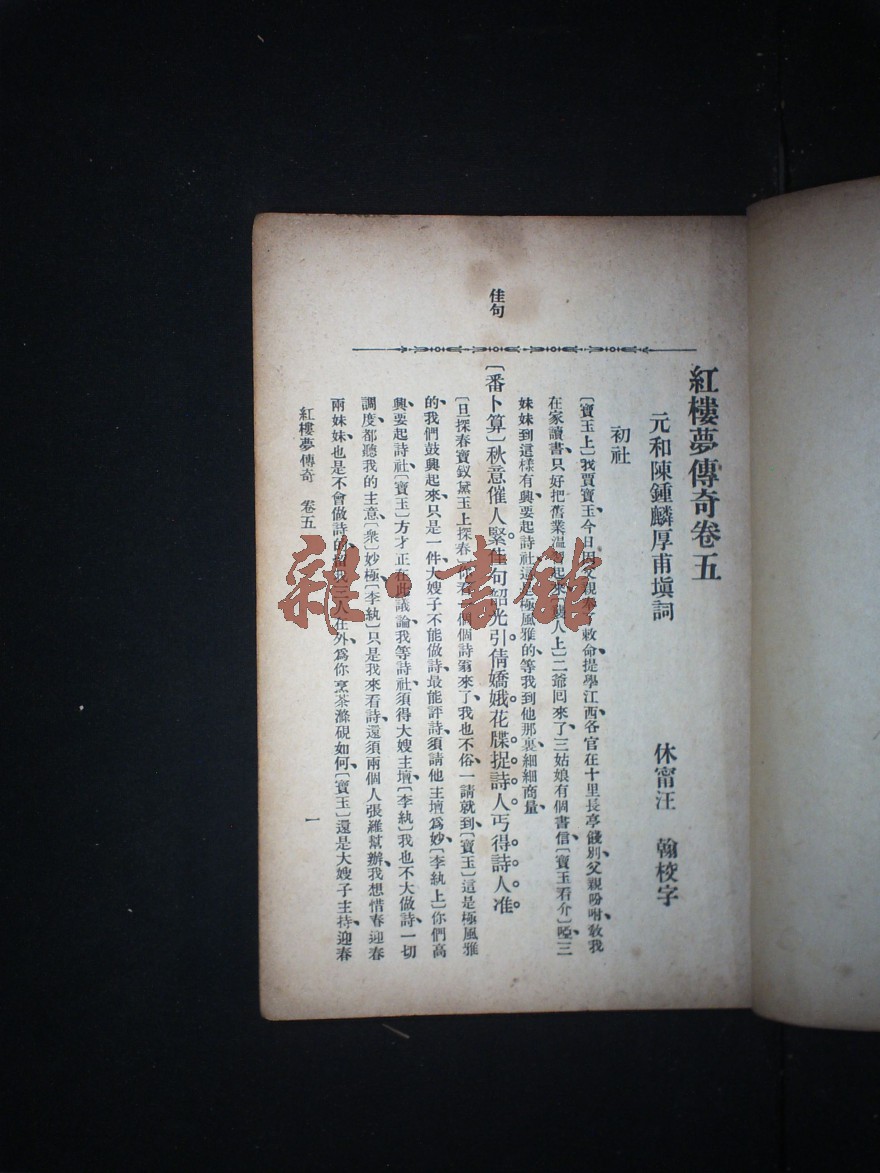 紅樓夢傳奇卷五
元和陳鍾麟厚甫塡詞　休甯汪　翰校字
初社
［寶玉上］我賈寶玉今日因父親奉了敕命提學江西各官在十里長亭餞別父親吩咐敎我
在家讀書只好把舊業溫起來人上］二爺回來了三姑娘有個書信［寶玉看介］啞三
妹妹到這樣有興要起詩社這極風雅的等我到他那裏細細商量
佳句
［番卜算］秋意催人緊佳句韶光引倩嬌娥花牒捉詩人丐得詩人准
［旦探春寶釵黛玉上探春］你看個個詩翁來了我也不俗一請就到［寶玉］這是極風雅
的我們鼓興起來只是一件大嫂子不能做詩最能評詩須請他主壇爲妙［李紈上］你們高
興要起詩社［寶玉］方才正在此議論我等詩社須得大嫂主壇［李紈］我也不大做詩一切
調度都聽我的主意［衆］妙極［李紈］只是我來看詩還須兩個人張羅幫辦我想惜春迎春
兩妹妹也是不會做詩的三人在外爲你烹茶滌硯如何［寶玉］還是大嫂子主持迎春
紅樓夢傳奇　卷五　一
雜·書館